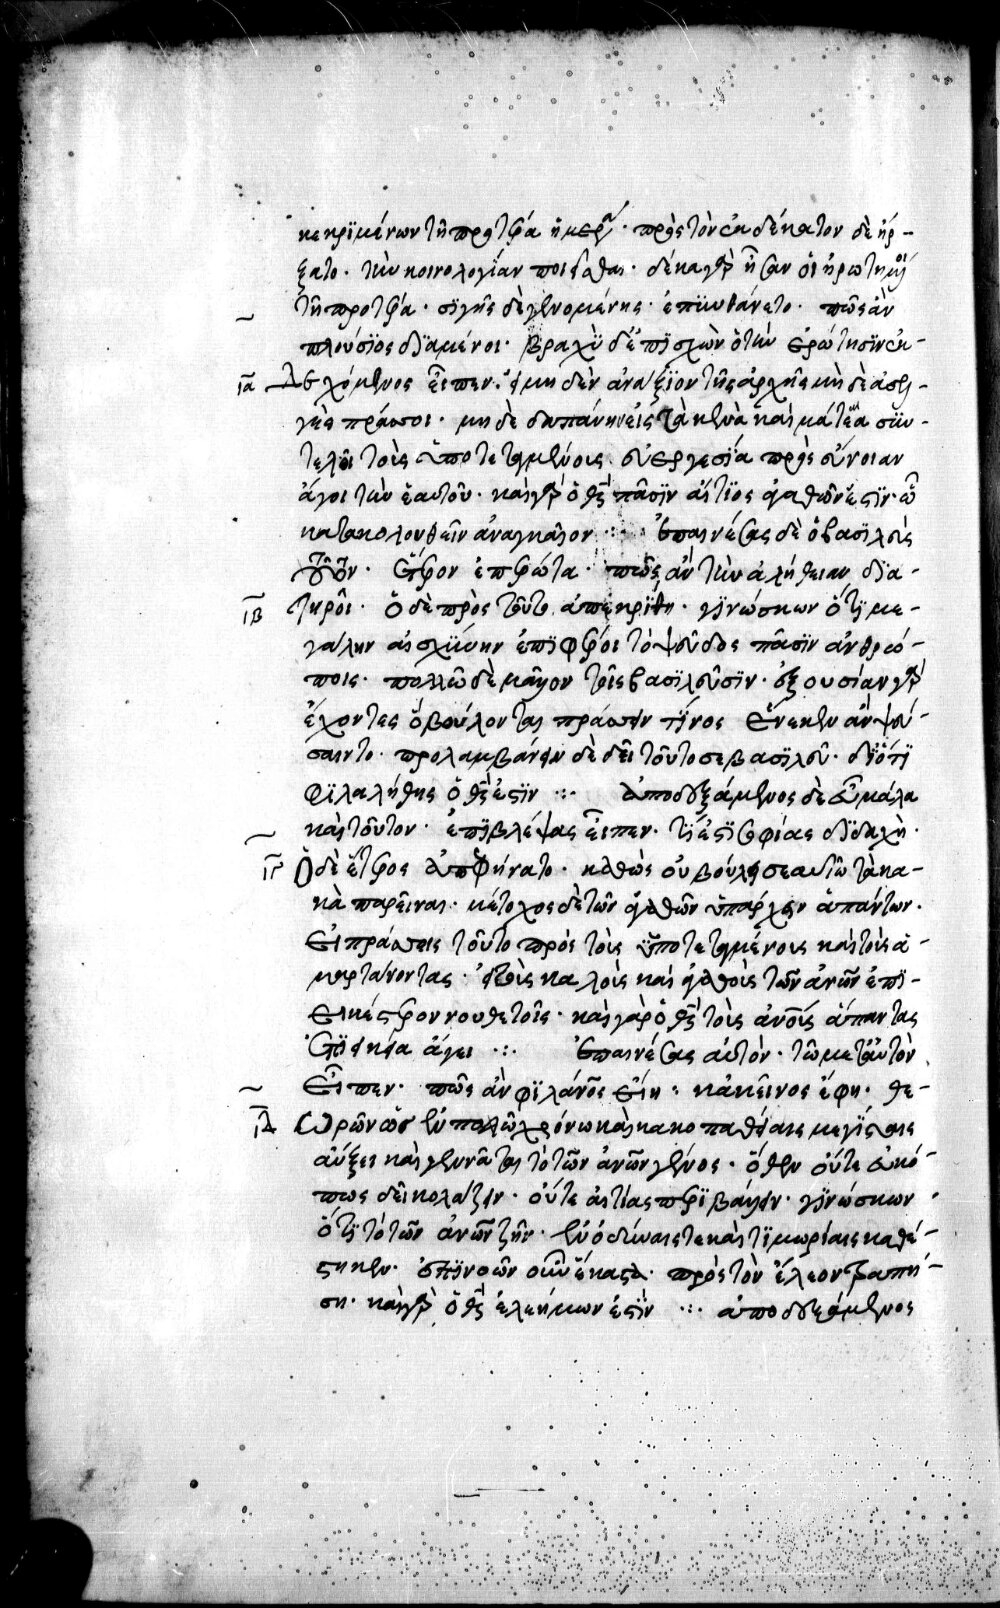 κεκριμένων τῆ προτέρα ἡμέρα· πρὸς τὸν ἑνδέκατον δὲ ἤρ-
ξατο· τὴν κοινολογίαν ποιεῖσθαι· δέκα γὰρ ἦσαν οἱ ἠρωτημένοι
τῆ προτέρα· σιγῆς δὲ γενομένης· ἐπυνθάνετο· πῶς ἂν
πλούσιος διαμένοι· βραχὺ δὲ ἐπισχὼν ὁ τὴν ἐρώτησιν ἐκ-
ιᾱ δεχόμενος εἶπεν· εἰ μηδὲν ἀνάξιον τῆς ἀρχῆς μηδὲ ἀσελ-
γὲς πράσσοι· μηδὲ δαπάνη εἰς τὰ κενὰ καὶ μάταια συν-
τελοῖ τοὺς ὑποτεταγμένους εὐεργεσία πρὸς εὔνοιαν
ἄγοι τὴν ἑαυτοῦ· καὶ γὰρ ὁ θς πᾶσιν αἴτιος ἀγαθῶν ἐστιν· ᾧ
κατακολουθεῖν ἀναγκαῖον ·:· ἐπαινέσας δὲ ὁ βασιλεὺς
τοῦτον· ἕτερον ἐπερώτα· πῶς ἂν τὴν ἀλήθειαν δια-
ιβ̄ τηροῖ· ὁ δὲ πρὸς τοῦτο ἀπεκρίθη· γινώσκων ὅτι με-
γάλην αἰσχύνην ἐπιφέροι τὸ ψεῦδος πᾶσιν ἀνθρώ-
ποις· πολλῶ δὲ μᾶλλον τοῖς βασιλεῦσιν· ἐξουσίαν γὰρ
ἔχοντες ὃ βούλονται πράσσειν τίνος ἕνεκεν ἂν ψεύ-
σαιντο· προλαμβάνειν δὲ δεῖ τοῦτο σε βασιλεῦ· διότι
φιλαλήθης ὁ θς ἐστιν ·:· ἀποδεξάμενος δὲ εὖ μάλα
καὶ τοῦτον· ἐπιβλέψας εἶπεν· τί ἐστι σοφίας διδαχὴ·
ιγ̄ Ὁ δὲ ἕτερος ἀπεφήνατο· καθὼς οὐ βούλη σεαυτῶ τὰ κα-
κὰ παρεῖναι· μέτοχος δὲ τῶν ἀγαθῶν ὑπάρχειν ἁπάντων·
εἰ πράσσεις τοῦτο πρὸς τοὺς ὑποτεταγμένους καὶ τοὺς ἁ-
μαρτάνοντας· εἰ τοὺς καλοὺς καὶ ἀγαθοὺς τῶν ἀνων ἐπι-
εικέστερον νουθετοῖς· καὶ γὰρ ὁ θς τοὺς ἀνους ἅπαντας
ἐπιεικεία ἄγει ·:· ἐπαινέσας αὐτὸν· τῶ μετ' αὐτὸν
εἶπεν· πῶς ἂν φιλάνος εἴη : κἀκεῖνος ἔφη· θε-
ιδ̄ ωρῶν ὡς ἐν πολλῶ χρόνω καὶ κακοπαθείαις μεγίσταις
αὔξει καὶ γεννᾶται τὸ τῶν ἀνων γένος· ὅθεν οὔτε εὐκό-
πως δεῖ κολάζειν· οὔτε αἰτίας περιβάλλειν· γινώσκων
ὅτι τὸ τῶν ἀνων ζῆν· ἐν ὀδύναις τε καὶ τιμωρίαις καθέ-
στηκεν· ἐπινοῶν οὖν ἕκαστα· πρὸς τὸν ἔλεον τραπή-
ση· καὶ γὰρ ὁ θς ἐλεήμων ἐστίν ·:· ἀποδεξάμενος